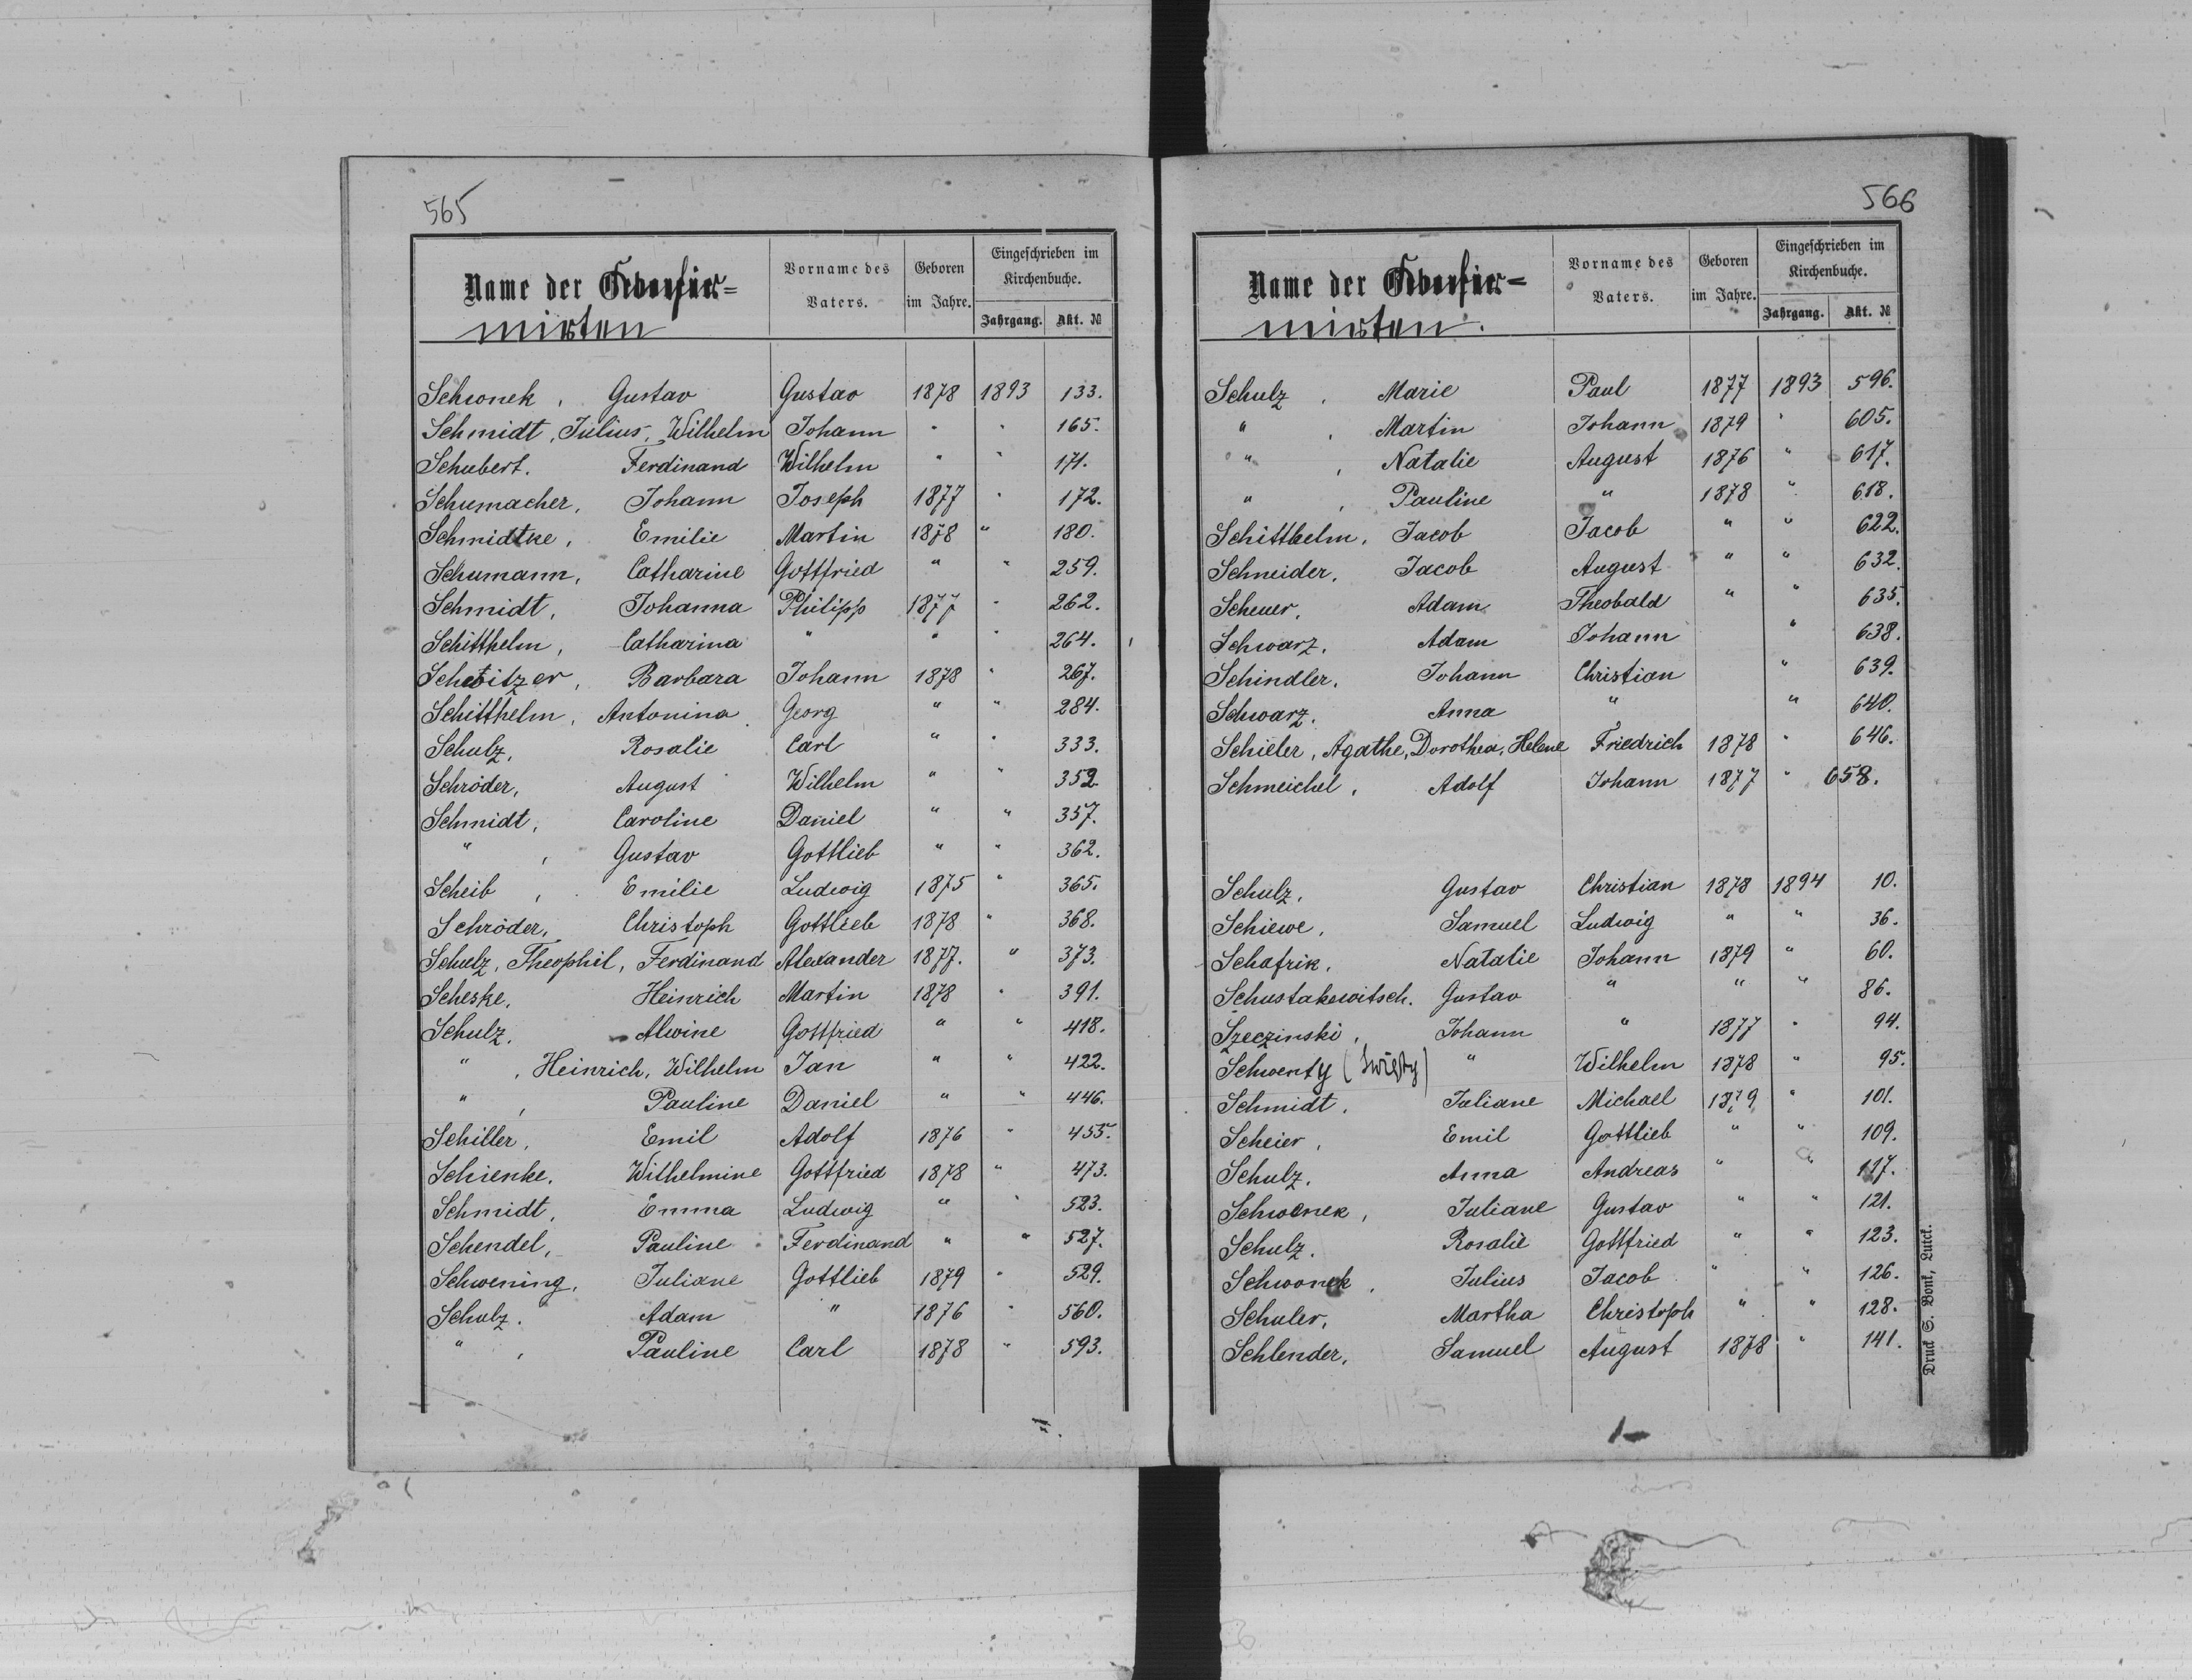 565
Name der Confir=
mirten
Vorname des Vaters.
Geboren im Jahre.
Eingeschrieben im Kirchenbuche.
Jahrgang. Akt. №
Schwonek, Gustav Gustav 1878 1893 133.
Schmidt, Julius, Wilhelm Johann " " 165.
Schubert. Ferdinand Wilhelm " " 171.
Schumacher, Johann Joseph 1877 " 172.
Schmidtke, Emilie Martin 1878 " 180.
Schumann, Catharine Gottfried " " 259.
Schmidt, Johanna Philipp 1877 " 262.
Schitthelm, Catharina " " " 264.
Schweitzer, Barbara Johann 1878 " 267.
Schitthelm, Antonina Georg " " 284.
Schulz, Rosalie Carl " " 333.
Schröder, August Wilhelm " " 352
Schmidt, Caroline Daniel " " 357.
" , Gustav Gottlieb " " 362.
Scheib, Emilie Ludwig 1875 " 365.
Schröder, Christoph Gottlieb 1878 " 368.
Schulz, Theophil, Ferdinand Alexander 1877. " 373.
Scheske, Heinrich Martin 1878 " 391.
Schulz, Alwine Gottfried " " 418.
" , Heinrich, Wilhelm Jan " " 422.
" , Pauline Daniel " " 446.
Schiller, Emil Adolf 1876 " 455.
Schienke, Wilhelmine Gottfried 1878 " 473.
Schmidt, Emma Ludwig " " 523.
Schendel, Pauline Ferdinand " " 527.
Schwening, Juliane Gottlieb 1879 " 529.
Schulz. Adam " 1876 " 560.
" , Pauline Carl 1878 " 593.
566
Name der Confir=
mirten.
Vorname des Vaters.
Geboren im Jahre.
Eingeschrieben im Kirchenbuche.
Jahrgang. Akt. №
Schulz, Marie Paul 1877 1893 596.
" , Martin Johann 1879 " 605.
" , Natalie August 1876 " 617.
" , Pauline " 1878 " 618.
Schitthelm, Jacob Jacob " " 622.
Schneider, Jacob August " " 632.
Scheuer, Adam Theobald " " 635.
Schwarz, Adam Johann " 638.
Schindler, Johann Christian " 639.
Schwarz, Anna " " 640.
Schieler, Agathe, Dorothea, Helene Friedrich 1878 " 646.
Schmeichel, Adolf Johann 1877 " 658.
Schulz, Gustav Christian 1878 1894 10.
Schiewe, Samuel Ludwig " " 36.
Schafrik, Natalie Johann 1879 " 60.
Schustakewitsch. Gustav " " " 86.
Szeczinski, Johann " 1877 " 94.
Schwenty (Święty) " Wilhelm 1878 " 95.
Schmidt, Juliane Michael 1879 " 101.
Scheier, Emil Gottlieb " " 109.
Schulz, Anna Andreas " " 117.
Schwonek, Juliane Gustav " " 121.
Schulz. Rosalie Gottfried " " 123.
Schwonek, Julius Jacob " " 126.
Schuler, Martha Christoph " " 128.
Schlender, Samuel August 1878 " 141.
Druck S. Bonk, Lutck.